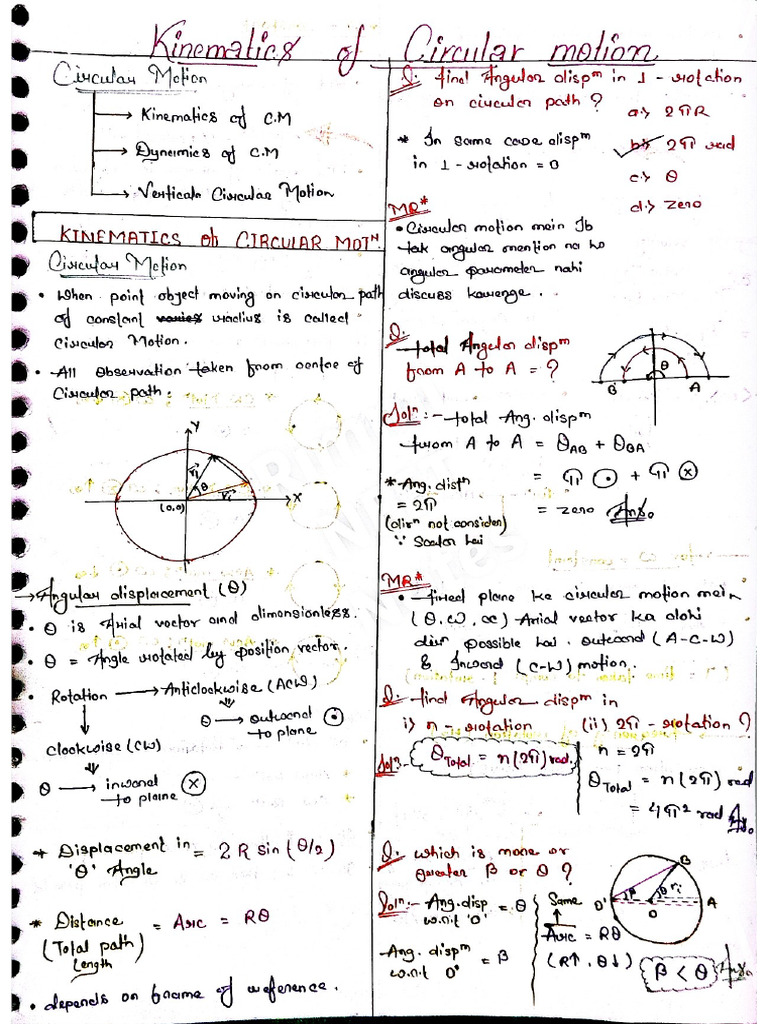 Kinematics of Circular motion
Circular Motion
→ Kinematics of C.M
→ Dynamics of C.M
→ Vertical Circular Motion
KINEMATICS of CIRCULAR MOTⁿ.
Circular Motion
• When point object moving on circular path
of constant varies radius is called
Circular Motion.
• All Observation taken from centre of
Circular path.
y
r⃗f
θ
r⃗i
x
(0,0)
→ Angular displacement (θ)
• θ is Axial vector and dimensionless.
• θ = Angle rotated by position vector.
• Rotation → Anticlockwise (ACW)
θ → outward ⊙
to plane
Clockwise (CW)
θ → inward ⊗
to plane
* Displacement in = 2 R sin (θ/2)
'θ' Angle
* Distance = Arc = Rθ
(Total path)
Length
• depends on frame of reference.
Q. find Angular dispᵐ in 1 - rotation
on circular path ?
a.) 2πR
* In same case dispᵐ
b.) 2π rad
in 1 - rotation = 0
c.) θ
d.) Zero
MR*
• Circular motion mein Jb
tak angular mention na ho
angular parameter nahi
discuss karenge .
Q. total Angular dispᵐ
from A to A = ?
θ
B A
Solⁿ :- total Ang. dispᵐ
from A to A = θAB + θBA
* Ang. distⁿ = π ⊙ + π ⊗
= 2π
(dirⁿ not consider) = zero Ans.
∵ Scalar hai
MR*
• fixed plane ke circular motion mein
(θ, ω, α) Axial vector ka dohi
dirⁿ possible hai. outward (A-C-W)
& Inward (C-W) motion.
Q. find Angular dispᵐ in
i) n - rotation (ii) 2π - rotation ?
Sol:- θTotal = n(2π) rad.
n = 2π
θTotal = n(2π) rad
= 4π² rad Ans.
Q. which is more or
greater β or θ ?
B
O' β θ ri A
O
Solⁿ:- Ang. disp = θ
w.r.t 'O'
Same
Arc = Rθ
(R↑, θ↓)
Ang. dispᵐ = β
w.r.t O'
β < θ Ans.